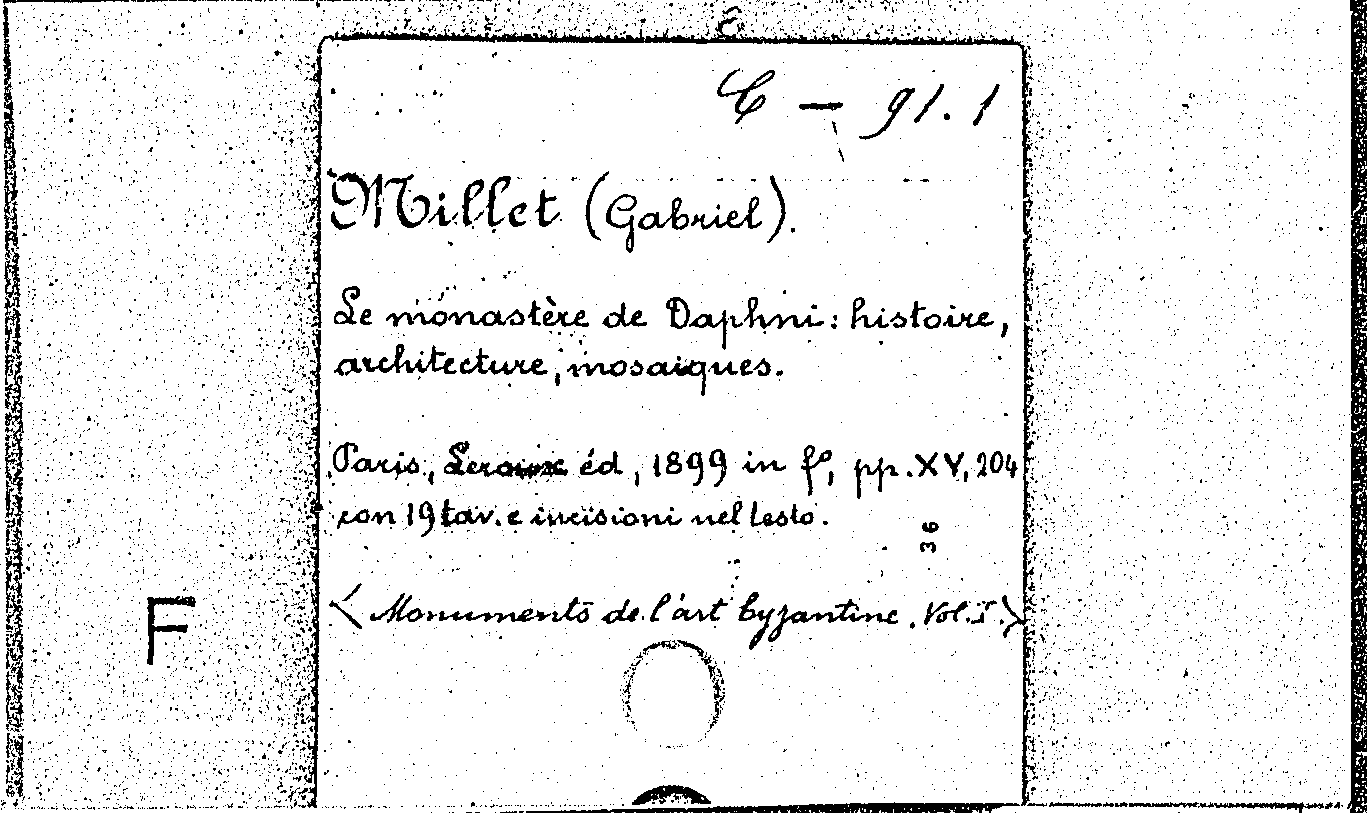 C — 91.1
Millet (Gabriel).
Le monastère de Daphni: histoire,
architecture, mosaiques.
Paris, Leroux éd, 1899 in f°, pp. XV, 204
con 19 tav. e incisioni nel testo.
36
<Monuments de l'art byzantine. Vol. I.>
F